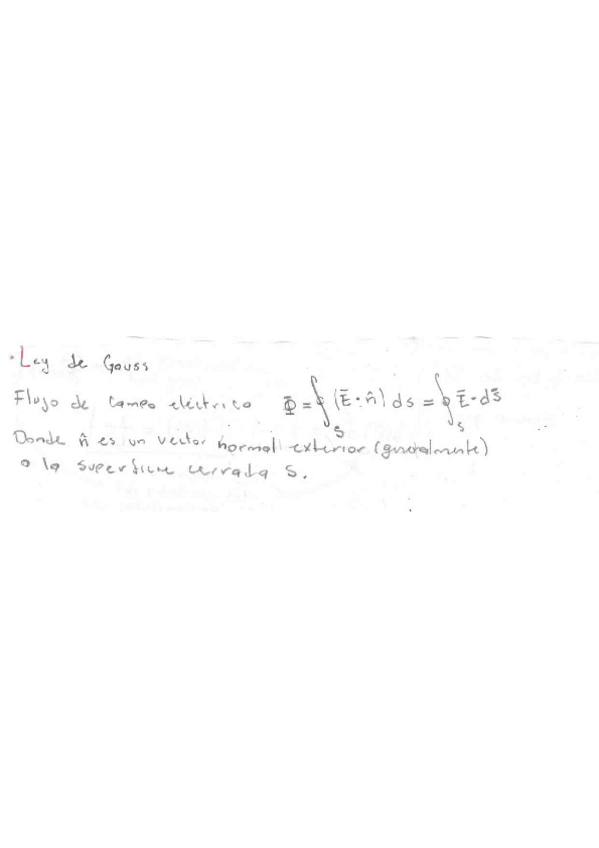 · Ley de Gauss
Flujo de campo eléctrico Φ = ∮_S (Ē · n̂) ds = ∮_S Ē · ds̄
Donde n̂ es un vector normal exterior (generalmente)
a la superficie cerrada S.